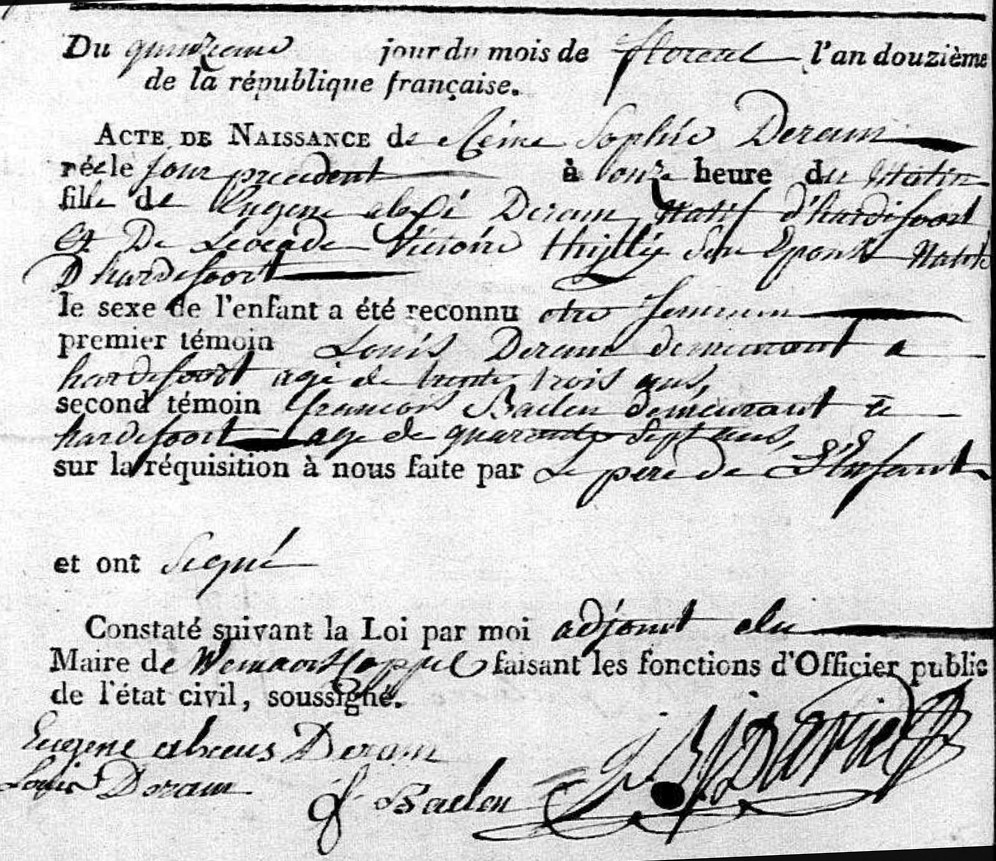 Du quinzieme jour du mois de floreal l'an douzième
de la république française.
ACTE DE NAISSANCE de Reine Sophie Deram
née le jour precedent à onze heure du Matin
fille de Eugene alexi Deram Natif d'hardifoort
Et De Leocade Victoire thilly Son Epouse Native
D hardifoort
le sexe de l'enfant a été reconnu etre feminin
premier témoin Louis Deram demeurant a
hardifoort agé de trente trois ans,
second témoin francois Baelen demeurant a
hardifoort age de quarante Sept ans,
sur la réquisition à nous faite par Le pere de L'Enfant
et ont Signé
Constaté suivant la Loi par moi adjoint du
Maire de Wemaerscappel faisant les fonctions d'Officier public
de l'état civil, soussigné.
Eugene Deram
Louis Deram
f. Baelen